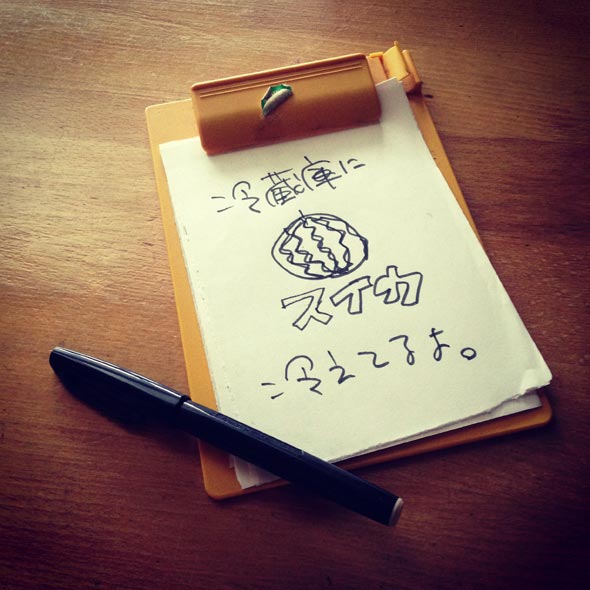 冷蔵庫に
スイカ
冷えてるよ。